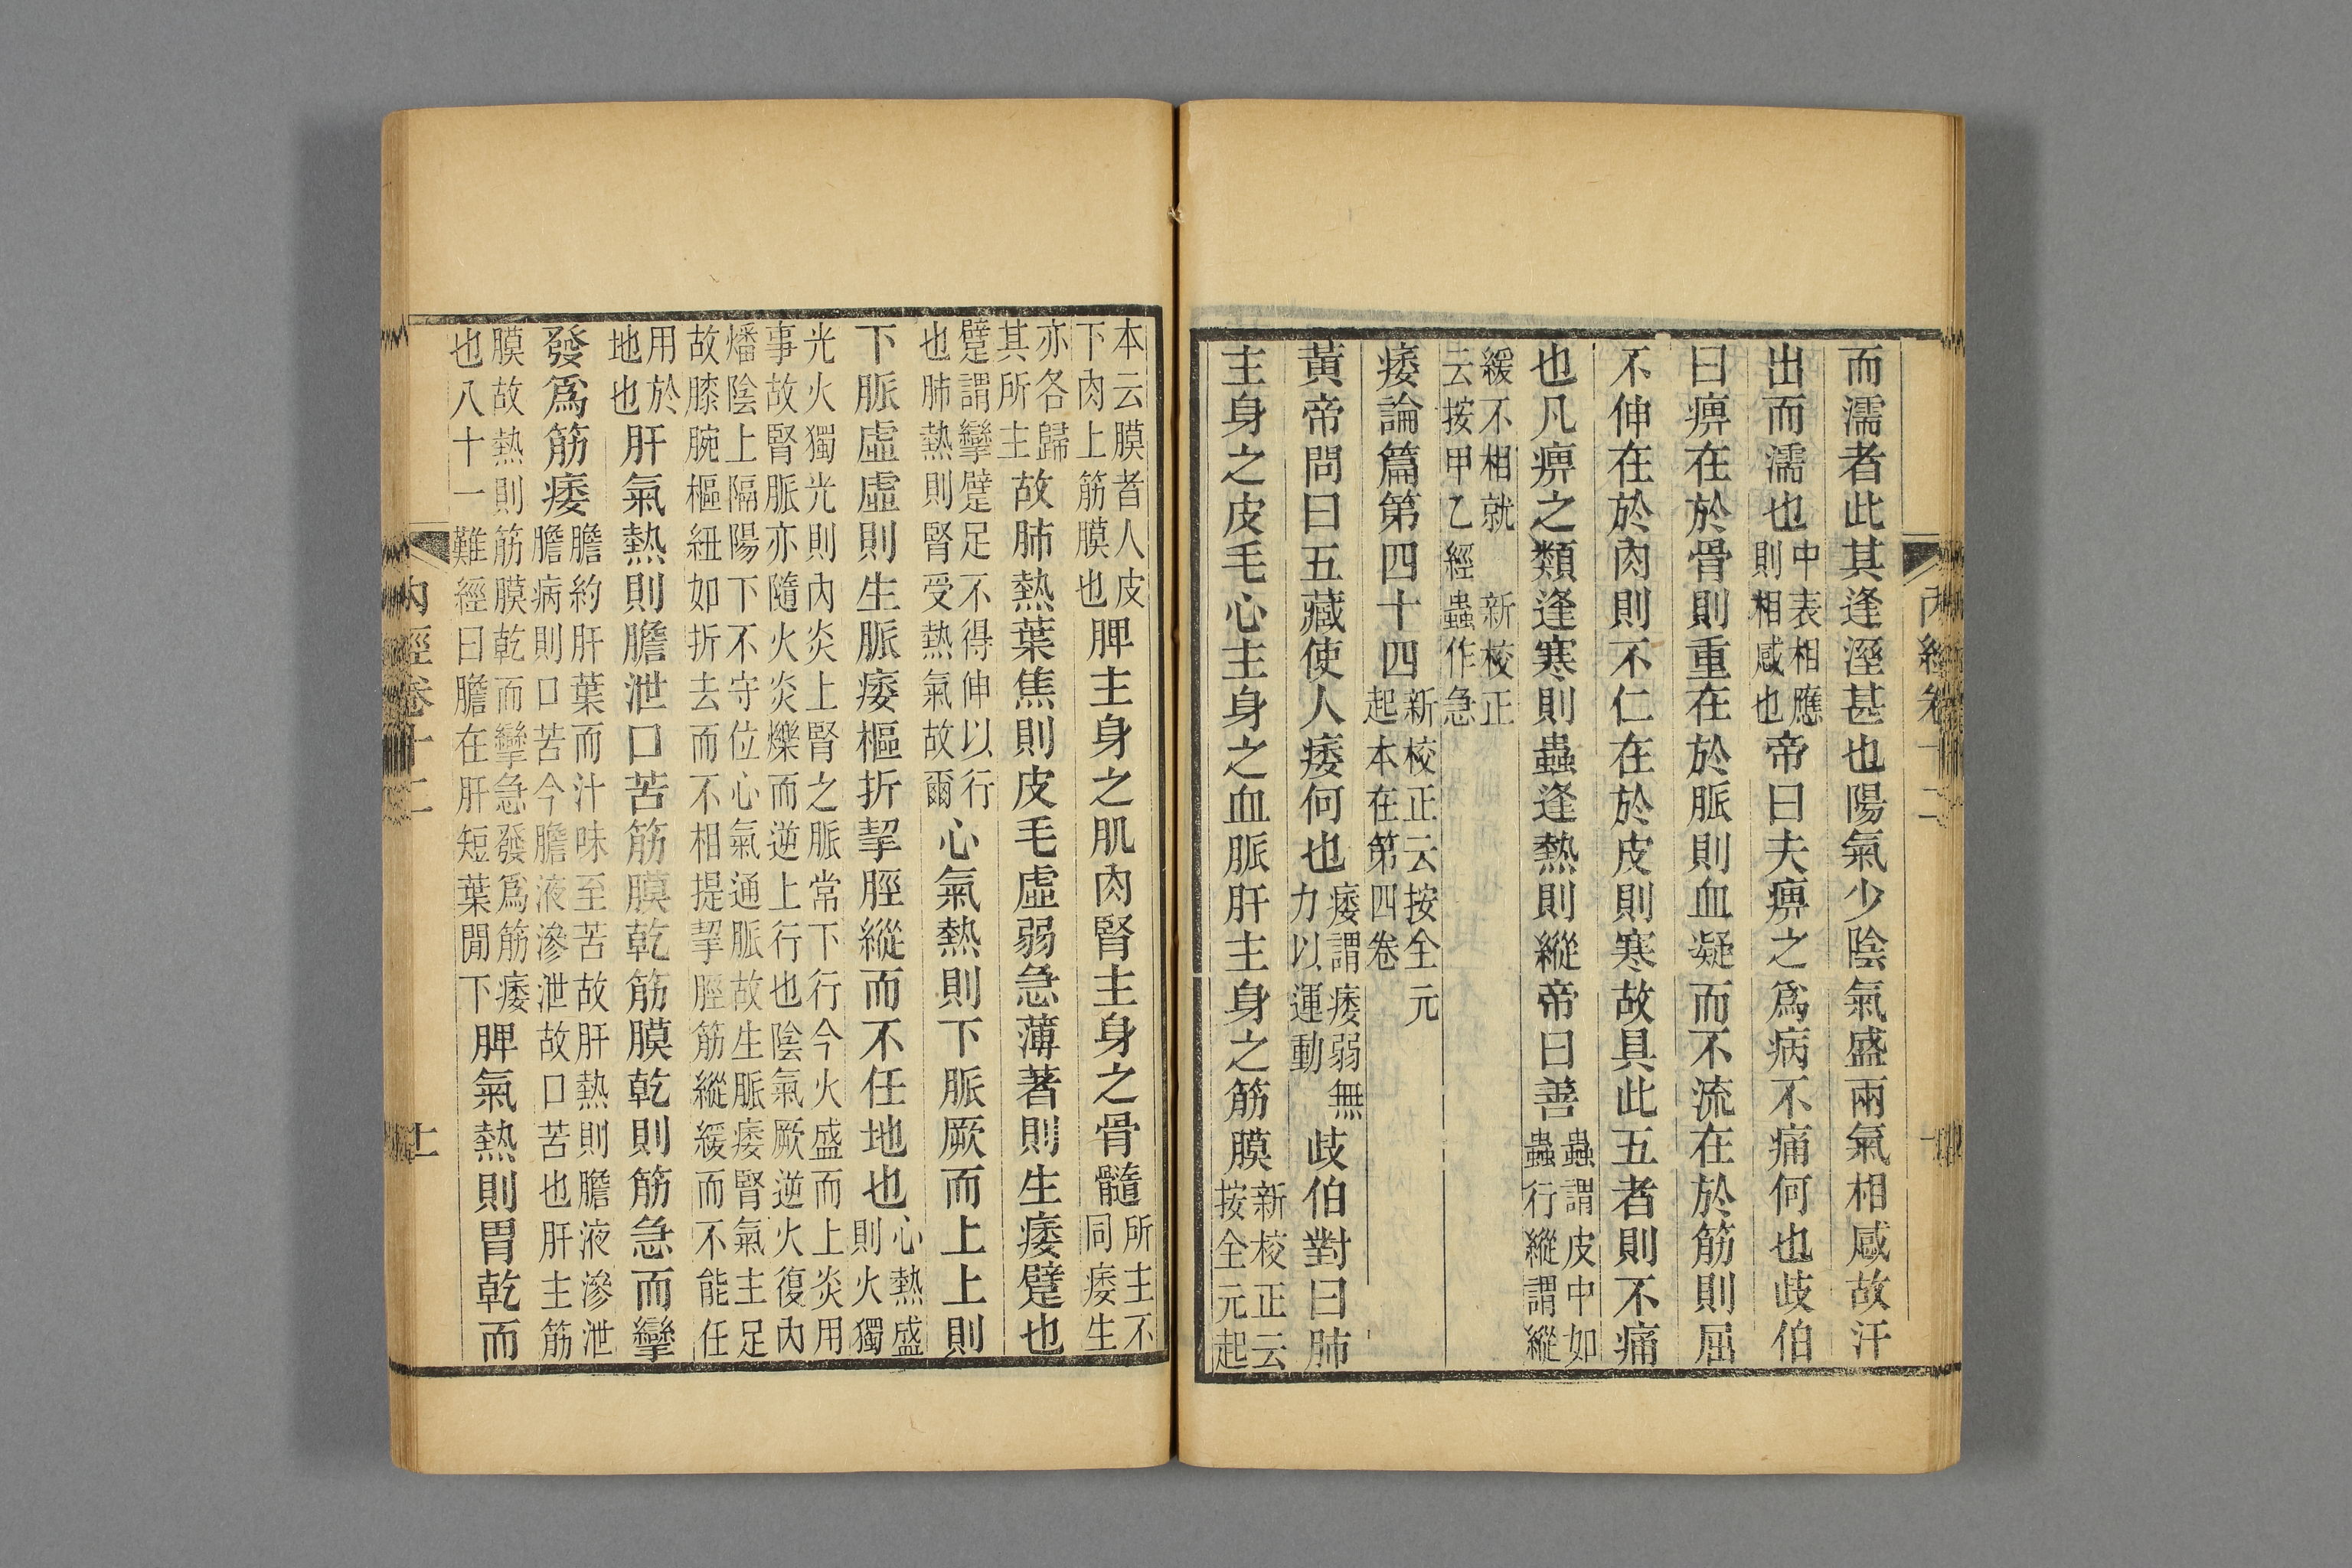 而濡者此其逢溼甚也陽氣少陰氣盛兩氣相感故汗
出而濡也中表相應則相感也帝曰夫痹之爲病不痛何也歧伯
曰痹在於骨則重在於脈則血凝而不流在於筋則屈
不伸在於肉則不仁在於皮則寒故具此五者則不痛
也凡痹之類逢寒則蟲逢熱則縱帝曰善蟲謂皮中如蟲行縱謂縱
緩不相就 新校正云按甲乙經蟲作急
痿論篇第四十四新校正云按全元起本在第四卷
黃帝問曰五藏使人痿何也痿謂痿弱無力以運動歧伯對曰肺
主身之皮毛心主身之血脈肝主身之筋膜新校正云按全元起
本云膜者人皮下肉上筋膜也脾主身之肌肉腎主身之骨髓所主不同痿生
亦各歸其所主故肺熱葉焦則皮毛虛弱急薄著則生痿躄也
躄謂攣躄足不得伸以行也肺熱則腎受熱氣故爾心氣熱則下脈厥而上上則
下脈虛虛則生脈痿樞折挈脛縱而不任地也心熱盛則火獨
光火獨光則內炎上腎之脈常下行今火盛而上炎用事故腎脈亦隨火炎爍而逆上行也陰氣厥逆火復內
燔陰上隔陽下不守位心氣通脈故生脈痿腎氣主足故膝腕樞紐如折去而不相提挈脛筋縱緩而不能任
用於地也肝氣熱則膽泄口苦筋膜乾筋膜乾則筋急而攣
發爲筋痿膽約肝葉而汁味至苦故肝熱則膽液滲泄膽病則口苦今膽液滲泄故口苦也肝主筋
膜故熱則筋膜乾而攣急發爲筋痿也八十一難經曰膽在肝短葉間下脾氣熱則胃乾而
內經卷十二
十一